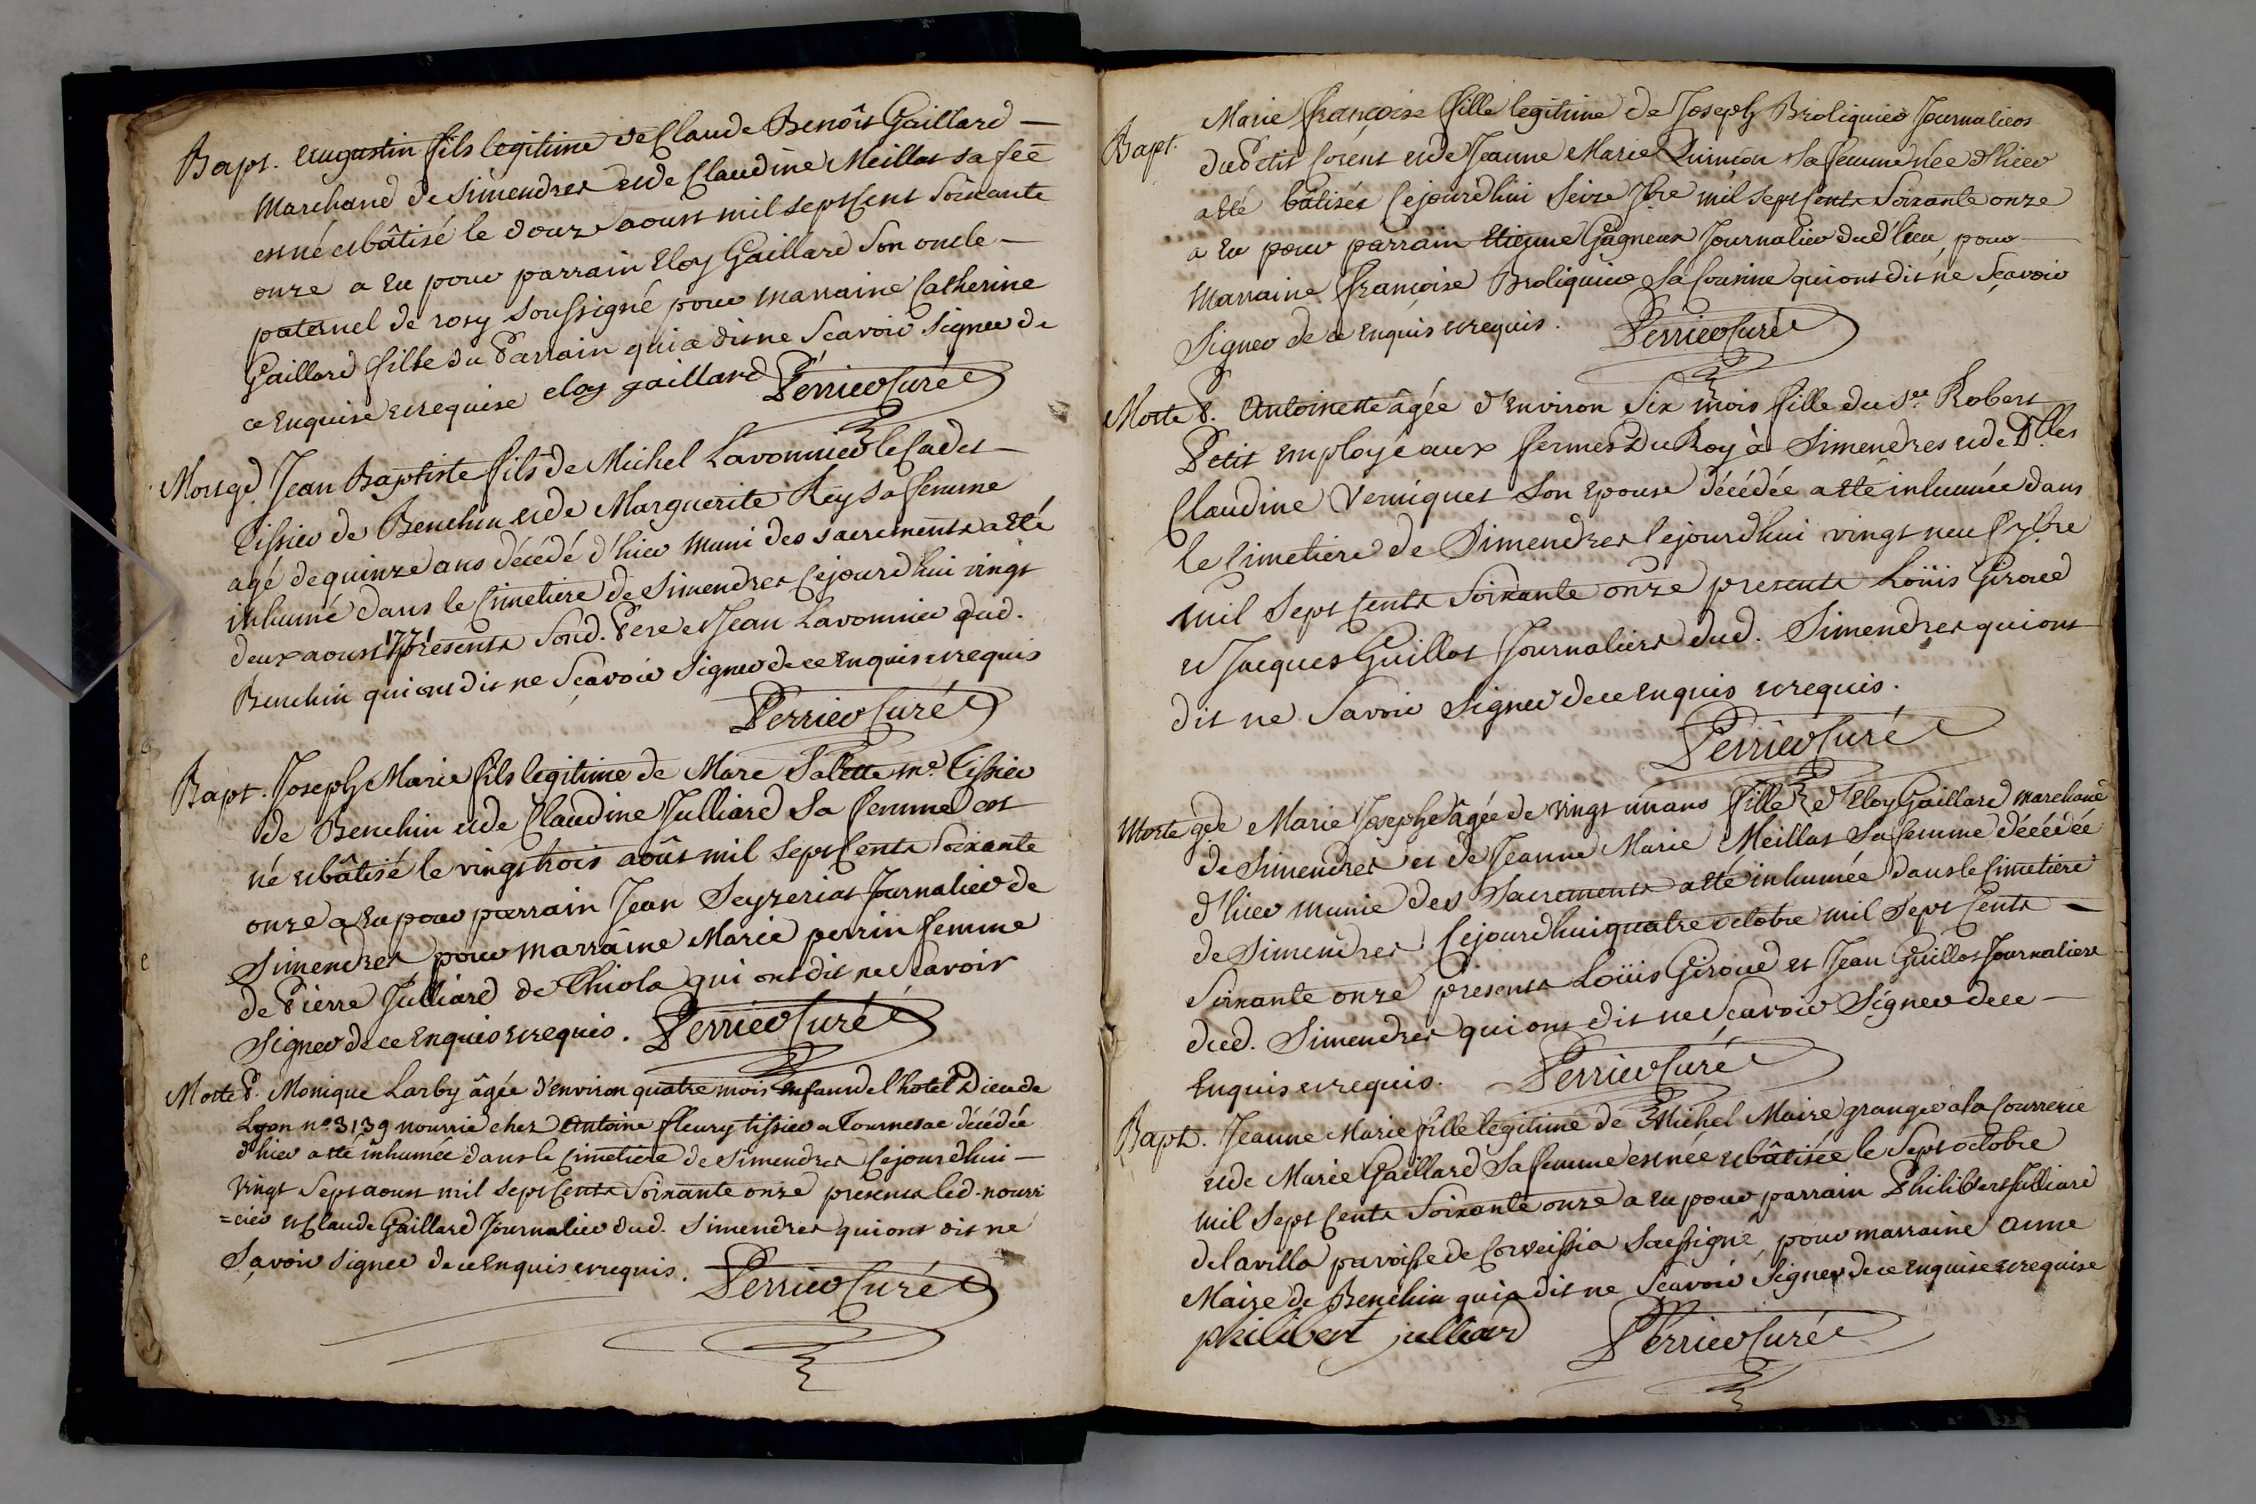 Bapt. Augustin fils legitime de Claude Benoît Gaillard
marchand de Simendres et de Claudine Meillat sa fee
est né et bâtisé le douze aoust mil sept Cent Soixante
onze a Eu pour parrain Eloy Gaillard Son oncle
paternel de rosy Soussigné pour marraine Catherine
Gaillard fille du Parrain qui a dit ne Scavoir Signer de
ce Enquise et requise eloy gaillard Perrier Curé
Mort gd. Jean Baptiste fils de Michel Lavonnier le Cadet
Tissier de Benchin et de Marguerite Rey Sa femme
agé de quinze ans décédé d'hier muni des Sacrements a Eté
inhumé dans le Cimetiere de Simendres Cejourdhui vingt
deux aoust 1771 presents Sond. Pere et Jean Lavonnier dud.
Benchin qui ont dit ne Sçavoir Signer de ce Enquis et requis
Perrier Curé
Bapt. Joseph Marie fils legitime de Marc Salette me. Tissier
de Benchin et de Claudine Julliard Sa femme est
né et bâtisé le vingt trois août mil sept Cents Soixante
onze a Eu pour parrain Jean Seyzeriat Journalier de
Simendres pour marraine Marie perrin femme
de Pierre Julliard de Chiola qui ont dit ne Scavoir
Signer de ce Enquis et requis. Perrier Curé
Morte P. Monique Larby âgée d'environ quatre mois Enfant de l'hotel Dieu de
Lyon n° 3139 nourrie chez Antoine fleury tissier a Tournesac décédée
d'hier a Eté inhumée dans le Cimetiere de Simendres Cejourdhui
Vingt Sept aoust mil Sept Cents Soixante onze presents led. nourri
=cier et Claude Gaillard Journalier dud. Simendres qui ont dit ne
Sçavoir Signer de ce Enquis et requis. Perrier Curé
Bapt. Marie françoise fille legitime de Joseph Broliquier Journalier
du Petit Corent et de Jeanne Marie Quinçon Sa femme née d'hier
a Eté bâtisée Cejourdhui Seize 7bre mil Sept Cents Soixante onze
a Eu pour parrain Etienne Gagneux Journalier dud. lieu pour
Marraine françoise Broliquier Sa Cousine qui ont dit ne Sçavoir
Signer de ce Enquis et requis. Perrier Curé
Morte P. Antoinette âgée d'Environ Six mois fille du Sr. Robert
Petit Employé aux fermes Du Roy à Simendres et de Dlles
Claudine Verniquet Son Epouse décédée a Eté inhumée dans
le Cimetiere de Simendres Cejourdhui vingt neuf 7bre
mil Sept Cents Soixante onze presents Loüis Giroud
et Jacques Guillot Journaliers dud. Simendres qui ont
dit ne Savoir Signer de ce Enquis et requis.
Perrier Curé
Morte gde Marie Josephe âgée de vingt un ans fille d'Eloy Gaillard marchand
de Simendres et de Jeanne Marie Meillat Sa femme décédée
d'hier munie des Sacrements a Eté inhumée dans le Cimetiere
de Simendres Cejourdhui quatre octobre mil Sept Cents
Soixante onze presents Loüis Giroud et Jean Guillot Journaliers
dud. Simendres qui ont dit ne Scavoir Signer de ce
Enquis et requis. Perrier Curé
Bapt. Jeanne Marie fille legitime de Michel Maire granger a la Courrerie
et de Marie Gaillard Sa femme est née et bâtisée le Sept octobre
mil Sept Cents Soixante onze a Eu pour parrain Philibert Julliard
de la villa paroisse de Corveissia Soussigné, pour marraine anne
Maire de Benchin qui a dit ne Sçavoir Signer de ce Enquise et requise
philibert julliard Perrier Curé